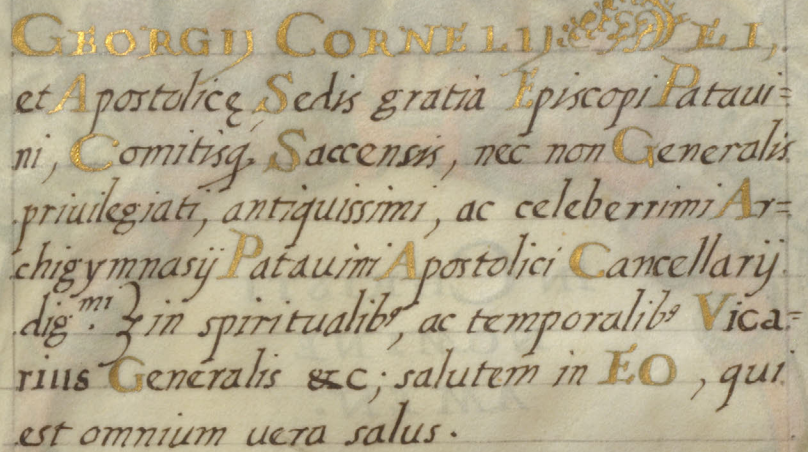 GEORGIJ CORNELIJ DEI,
et Apostolicę Sedis gratia Episcopi Pataui=
ni, Comitisq; Saccensis, nec non Generalis
priuilegiati, antiquissimi, ac celeberrimi Ar=
chigymnasij Patauini Apostolici Cancellarij
dig.mi in spiritualibꝰ, ac temporalibꝰ Vica=
rius Generalis &c; salutem in EO, qui
est omnium uera salus.